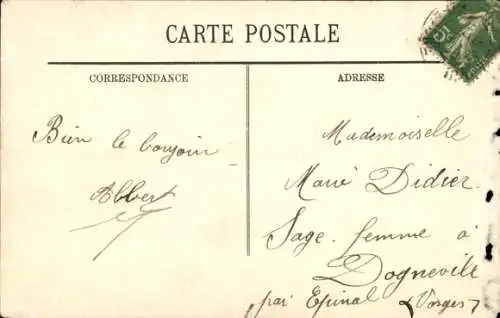 CARTE POSTALE
CORRESPONDANCE
ADRESSE
5
Bien le bonjoir
Albert
Mademoiselle
Marie Didier
Sage-femme à
Dogneville
par Epinal (Vosges)